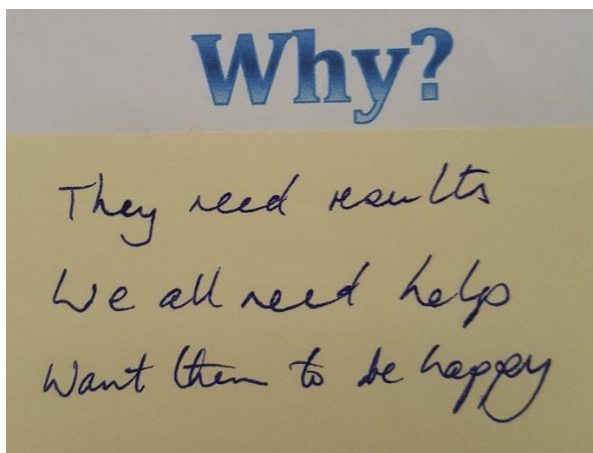 Why?
They need results
We all need help
Want them to be happy